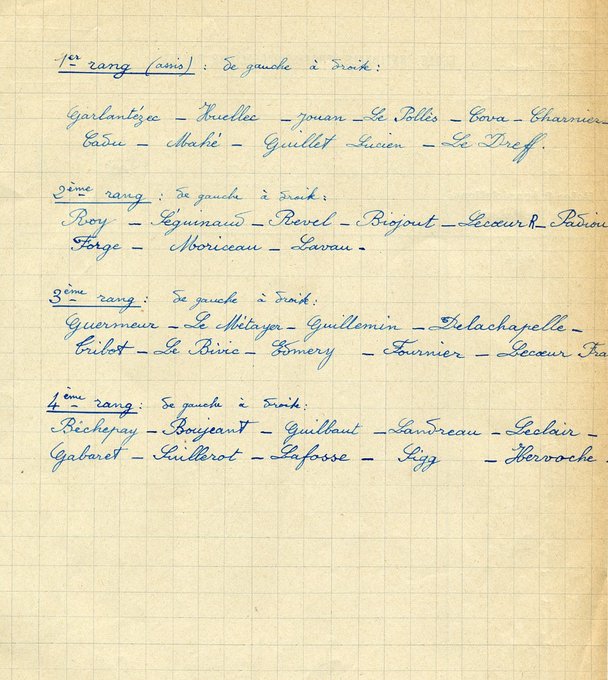 1er rang (assis) : de gauche à droite :
Garlantézec - Huellec - Jouan - Le Pollès - Cova - Charnier -
Cadu - Mahé - Guillet Lucien - Le Dreff.
2ème rang : de gauche à droite :
Roy - Séguinaud - Revel - Biojout - Lecœur R - Padiou
Forge - Moriceau - Lavau -
3ème rang : de gauche à droite :
Guermeur - Le Métayer - Guillemin - Delachapelle -
Tribot - Le Bivic - Edmery - Fournier - Lecœur Fra
4ème rang : de gauche à droite :
Béchepay - Boujeant - Guilbaut - Landreau - Leclair -
Gabaret - Guillerot - Lafosse - Sigg - Hervoche -